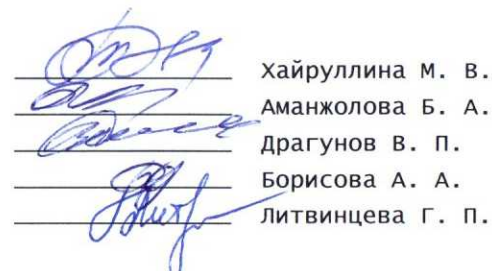 Хайруллина М. В.
Аманжолова Б. А.
Драгунов В. П.
Борисова А. А.
Литвинцева Г. П.